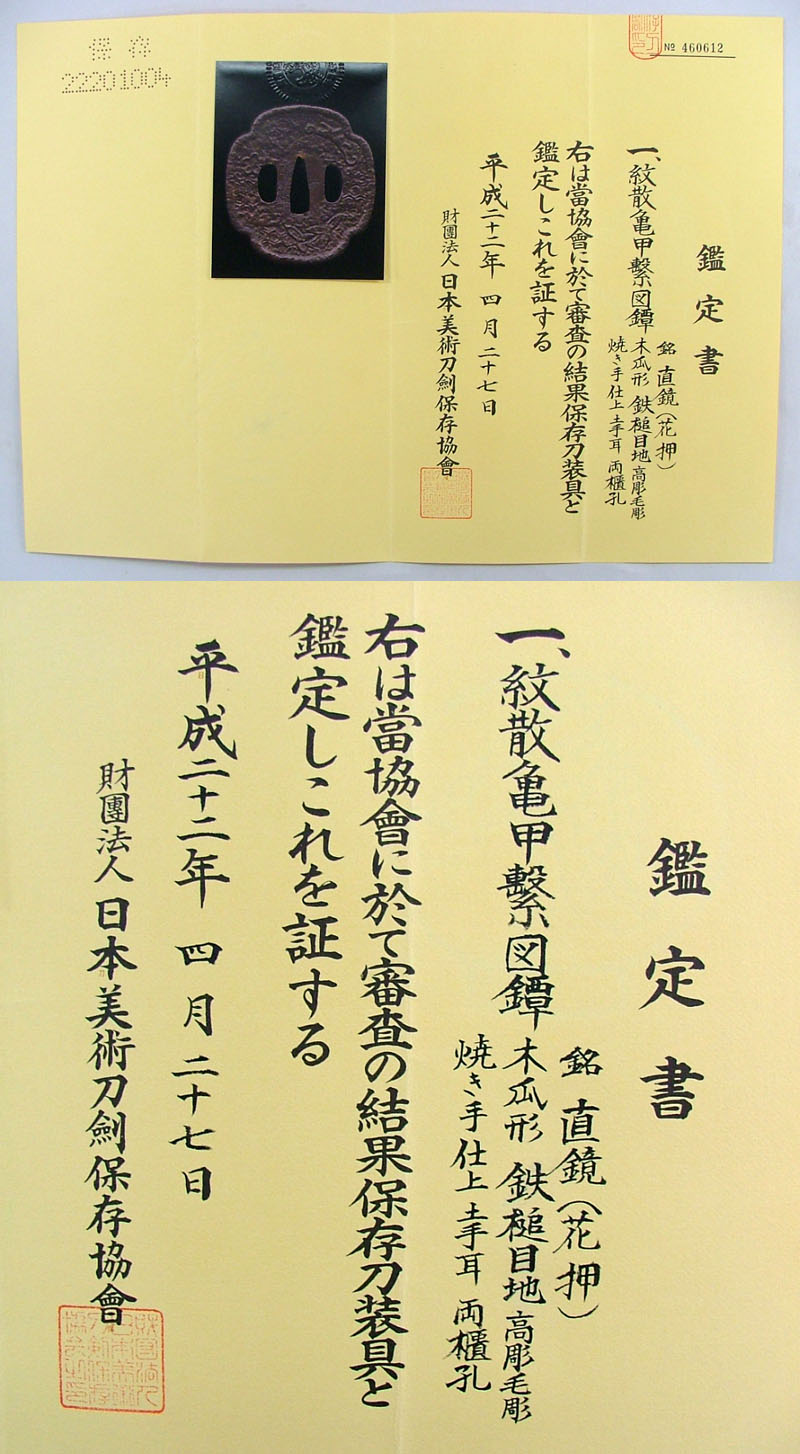 保存
22201004
№ 460612
鑑定書
一、紋散亀甲繋図鐔
銘 直鏡(花押)
木瓜形 鉄槌目地 高彫毛彫
焼き手仕上 土手耳 両櫃孔
右は當協會に於て審査の結果保存刀装具と
鑑定しこれを証する
平成二十二年 四月 二十七日
財團法人 日本美術刀劍保存協會
鑑定書
一、紋散亀甲繋図鐔
銘 直鏡(花押)
木瓜形 鉄槌目地 高彫毛彫
焼き手仕上 土手耳 両櫃孔
右は當協會に於て審査の結果保存刀装具と
鑑定しこれを証する
平成二十二年 四月 二十七日
財團法人 日本美術刀劍保存協會